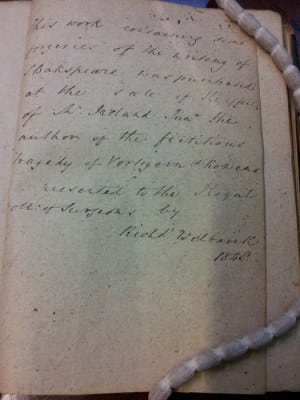 This work containing
forgeries of the writing of
Shakspeare was purchased
at the sale of the
of Mr Ireland Junr the
author of the fictitious
tragedy of Vortigern & Rowena
presented to the Royal
of Surgeons by
Richd
1848